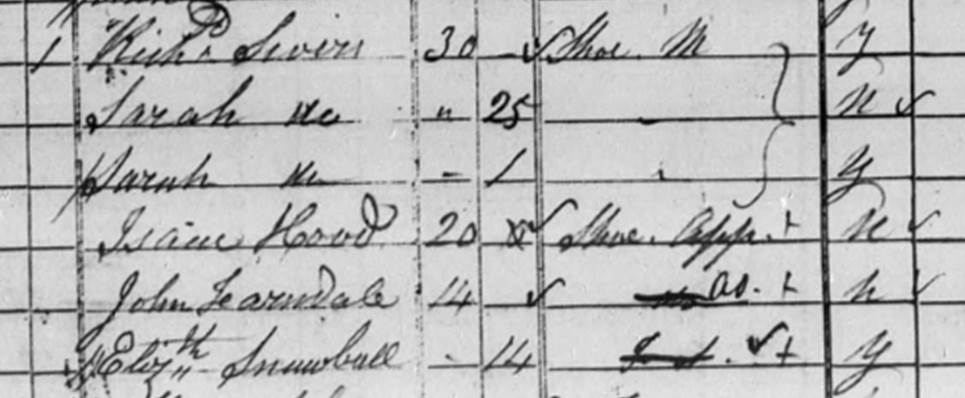 1 Richd Sivers 30 Shoe M y
Sarah do " 25 - n
Sarah do - 1 y
Isaac Hood 20 Shoe App. n
John Fearndale 14 do. n
Elizth Snowball - 14 y